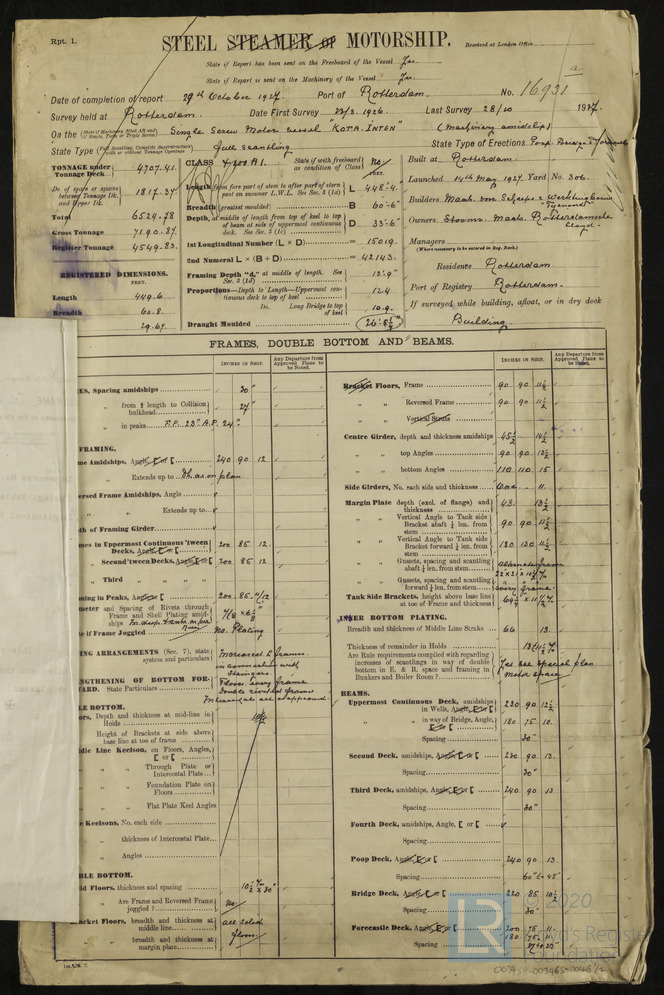 Rpt. 1.
STEEL STEAMER OR MOTORSHIP.
Received at London Office
State if Report has been sent on the Freeboard of the Vessel Yes.
State if Report is sent on the Machinery of the Vessel Yes.
Date of completion of report 29th October 1927. Port of Rotterdam. No. 16931
Survey held at Rotterdam. Date First Survey 23/2. 1926. Last Survey 28/10 1927.
On the Single Screw Motor vessel "KOTA INTEN" (Machinery amidship)
State Type full scantling State Type of Erections
TONNAGE under Tonnage Deck 4707.41.
Do. of space or spaces between Tonnage Dk. and Upper Dk. 1817.37
Total 6524.78
Gross Tonnage 7190.87.
Register Tonnage 4549.83.
REGISTERED DIMENSIONS.
FEET.
Length 449.6
Breadth 60.8.
29.67.
CLASS
State if with freeboard as condition of Class No
Length from fore part of stem to after part of stern post on summer L.W.L. See Sec. 3 (1a) L 448'.4"
Breadth (greatest moulded) B 60'-6"
Depth, at middle of length from top of keel to top of beam at side of uppermost continuous deck. See Sec. 3 (1c) D 33'-6"
1st Longitudinal Number (L × D) = 15019.
2nd Numeral L × (B + D) = 42143.
Framing Depth "d," at middle of length. See Sec. 3 (1d) 13'-9"
Proportions—Depth to Length—Uppermost continuous deck to top of keel 13.4
Do. Long Bridge to top of keel 10.9.
Draught Moulded
Built at Rotterdam.
Launched 14th May 1927. Yard No. 306.
Builders
Owners Stoom. Maats. Rotterdamsche Lloyd.
Managers
(Where necessary to be entered in Reg. Book.)
Residence Rotterdam
Port of Registry Rotterdam.
If surveyed while building, afloat, or in dry dock
Building
FRAMES, DOUBLE BOTTOM AND BEAMS.
INCHES IN SHIP.
Any Departure from Approved Plans to be Noted.
ES, Spacing amidships 30"
" from ⅕ length to Collision bulkhead 27"
" in peaks F.P. 23" A.P. 24"
FRAMING.
me Amidships, Angle, [ or [ 240 90 12
" Extends up to as on plan
ersed Frame Amidships, Angle
" " Extends up to
th of Framing Girder
mes in Uppermost Continuous 'tween Decks, Angle, [ or [ 200 85 12.
" Second 'tween Decks, Angle, [ or [ 200 85 12.
" Third " " " "
ming in Peaks, Angle, [ or [
meter and Spacing of Rivets through Frame and Shell Plating amidships
te if Frame Joggled No. Plating
ING ARRANGEMENTS (Sec. 7), state system and particulars
in connection with Stringers.
NGTHENING OF BOTTOM FORWARD. State Particulars Floors every frame
Double rivetted frame
LE BOTTOM.
ors, Depth and thickness at mid-line in Holds
Height of Brackets at side above base line at toe of frame
dle Line Keelson, on Floors, Angles, [ or [
" " Through Plate or Intercostal Plate
" " Foundation Plate on Floors
" " Flat Plate Keel Angles
e Keelsons, No. each side
" thickness of Intercostal Plate
" Angles
BLE BOTTOM.
id Floors, thickness and spacing
" Are Frame and Reversed Frame joggled? No.
acket Floors, breadth and thickness at middle line all solid
" " breadth and thickness at margin plate floors
INCHES IN SHIP.
Any Departure from Approved Plans to be Noted.
Bracket Floors, Frame 90 90 11½
" " Reversed Frame 90 90 11½
" " Vertical Struts
Centre Girder, depth and thickness amidships
" " top Angles
" " bottom Angles 110 110 15
Side Girders, No. each side and thickness One. 11.
Margin Plate depth (excl. of flange) and thickness
" " Vertical Angle to Tank side Bracket abaft ¼ len. from stem 90 90 11½
" " Vertical Angle to Tank side Bracket forward ¼ len. from stem 130 130 11½
" " Gussets, spacing and scantling abaft ¼ len. from stem
" " Gussets, spacing and scantling forward ¼ len. from stem every frame
Tank Side Brackets, height above base line at toe of Frame and thickness
INNER BOTTOM PLATING.
Breadth and thickness of Middle Line Strake 66 13.
Thickness of remainder in Holds
Are Rule requirements complied with regarding increases of scantlings in way of double bottom in E. & B. space and framing in Bunkers and Boiler Room? Yes see special plan motor space
BEAMS.
Uppermost Continuous Deck, amidships in Wells, Angle, [ or [ 220 90 12½
" " in way of Bridge, Angle, [ or [ 180 75 10.
Spacing 30"
Second Deck, amidships, Angle, [ or [ 230 90 13.
Spacing 30"
Third Deck, amidships, Angle, [ or [ 240 90 13
Spacing 30"
Fourth Deck, amidships, Angle, [ or [
Spacing
Poop Deck, Angle, [ or [ 240 90 13.
Spacing
Bridge Deck, Angle, [ or [ 220 85 10½
Spacing 30"
Forecastle Deck, Angle, [ or [ 200 75 11.
180 75 11.
Spacing
© 2020
Lloyd's Register
Foundation
003459-003465-0045 1/2